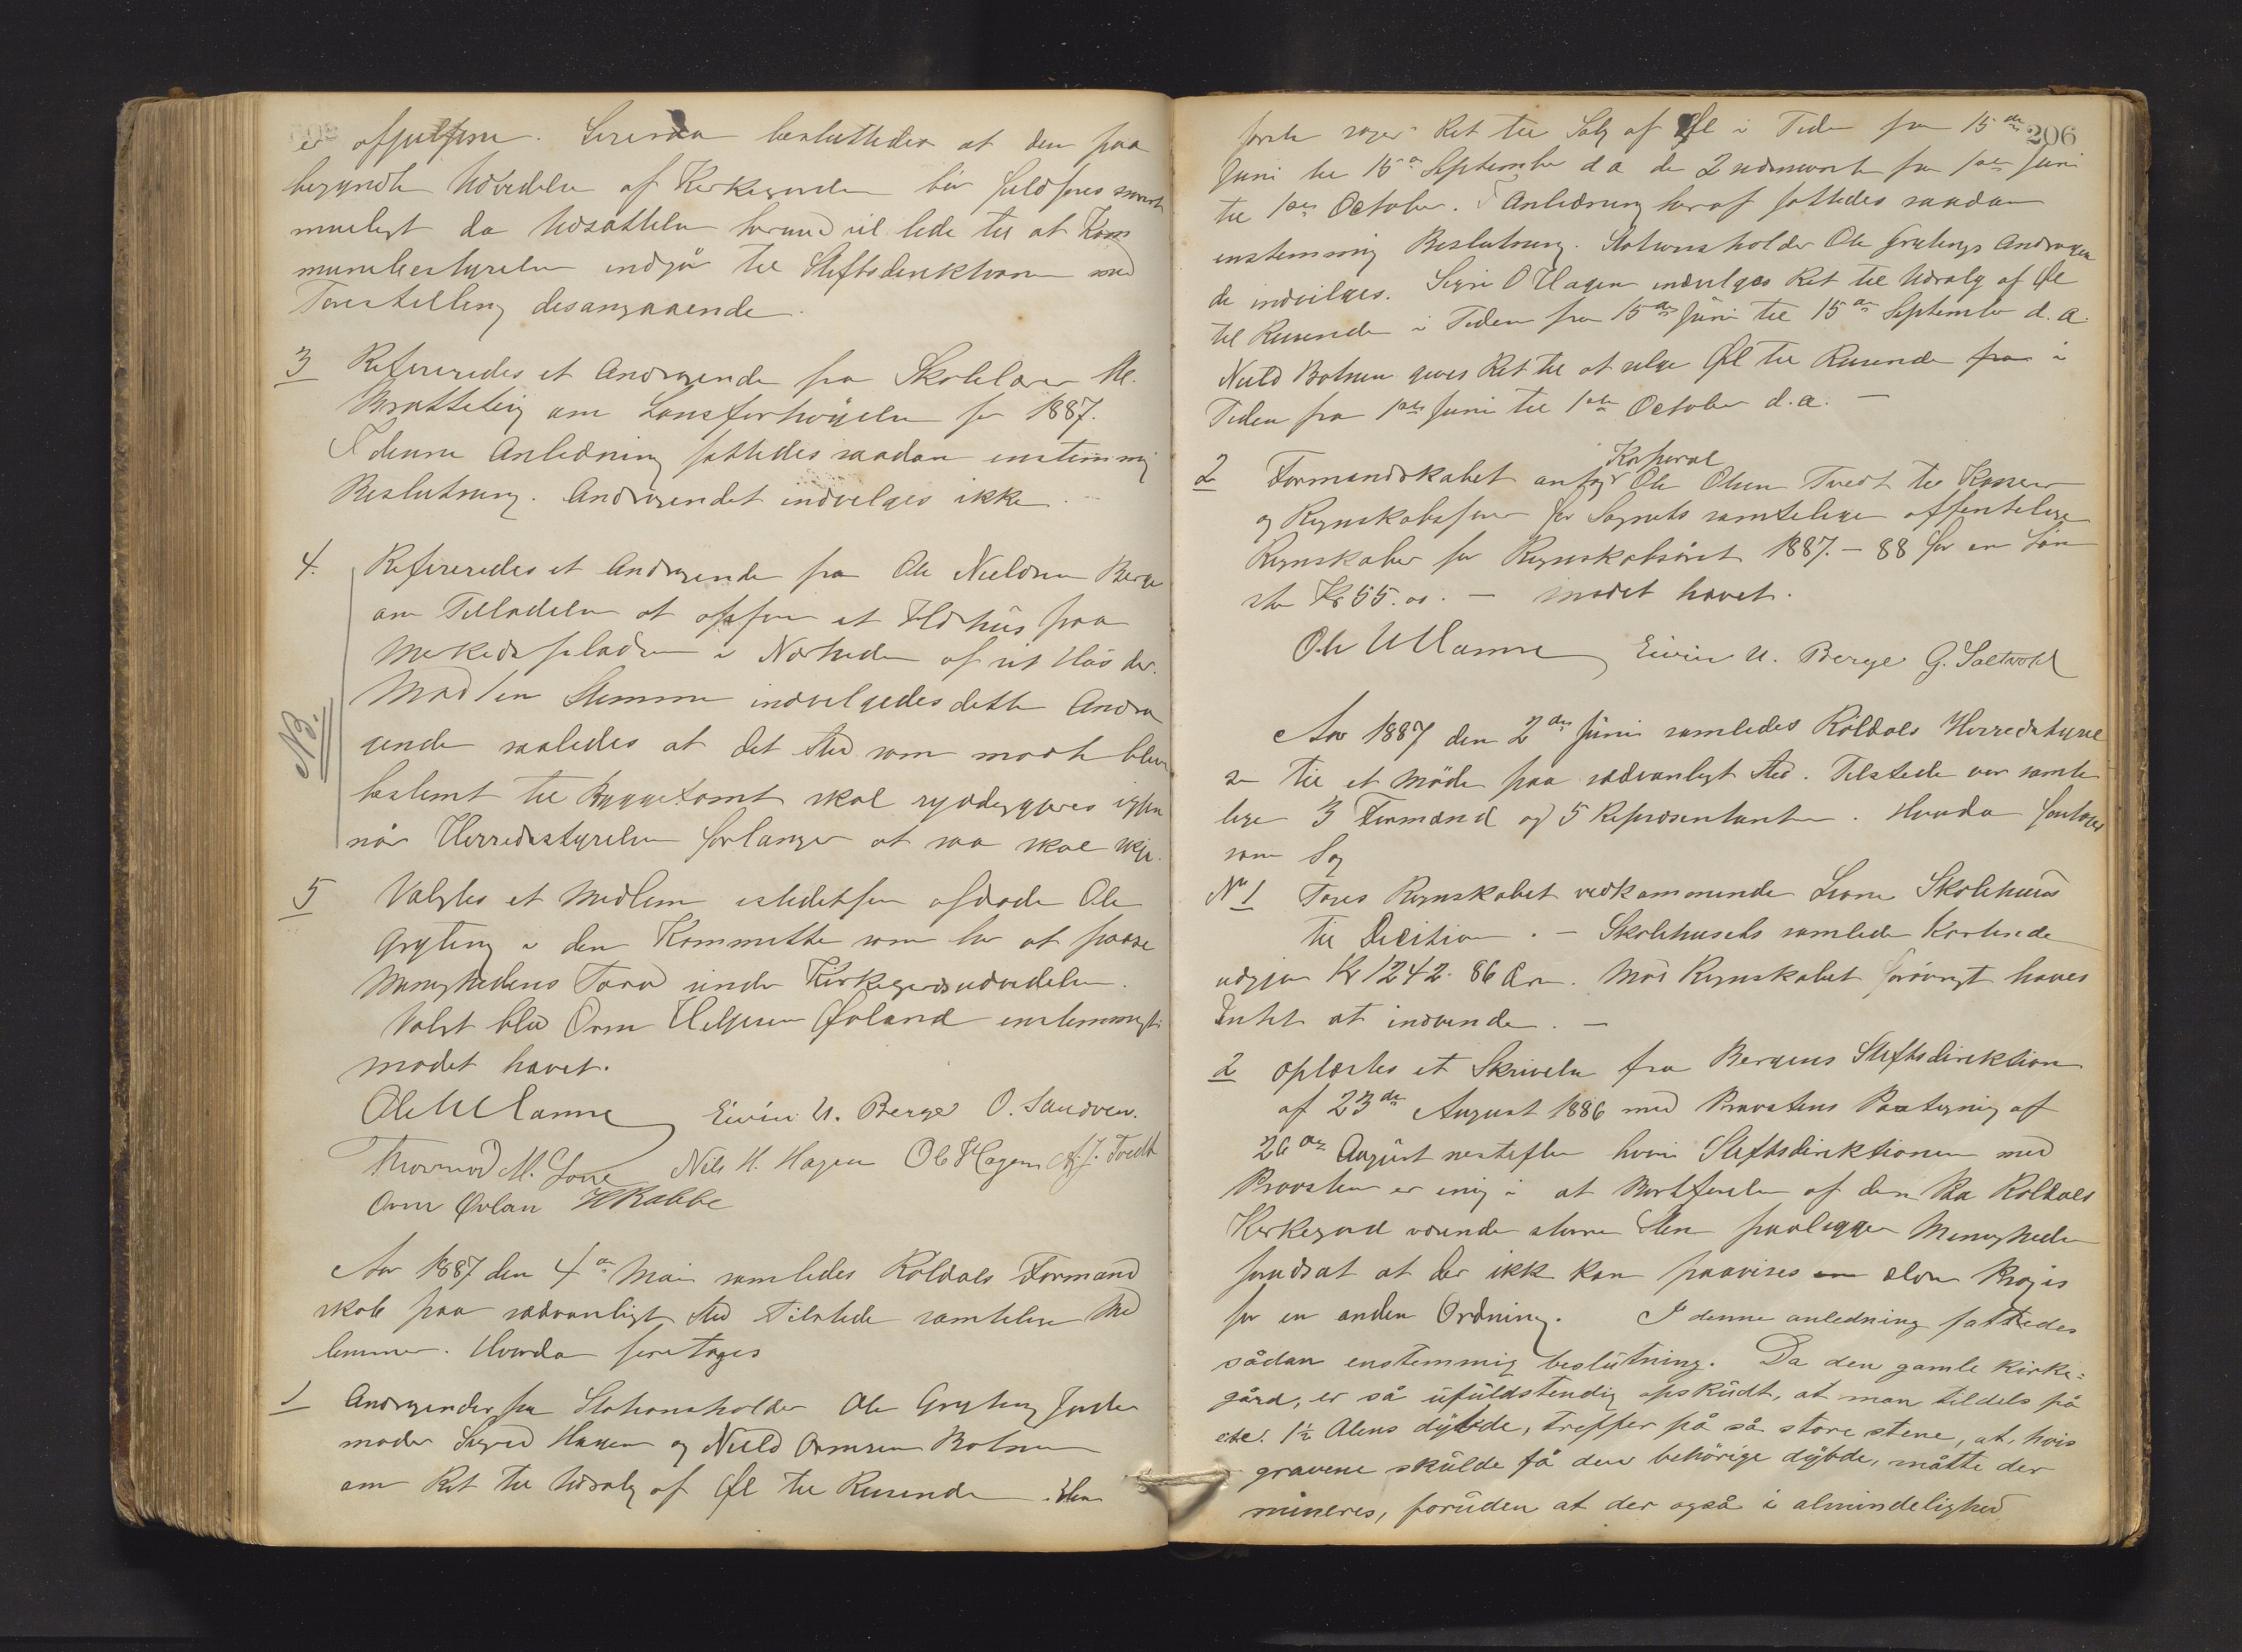 er opfyldt. Ligesaa besluttedes at den paa
begyndte Udvidelse af Kirkegaarden bør fuldføres snarest
mueligt da Udsættelse hermed vil lede til at Kom
munebestyrelsen indgår til Stiftsdirektionen med
Forestilling desangaaende.
3 Refereredes et Andragende fra Skolelærer M.
Brattebeig om Lønsforhöyelse for 1887.
I denne Anledning fattedes saadan enstemmig
Beslutning. Andragendet indvilges ikke.
4. Refereredes et Andragende fra Ole Nielsen Berge
om Tilladelse at opføre et Ildhus paa
Markedspladsen i Nærheden af sit Hus der.
Mod en Stemme indvilgedes dette Andra
gende saaledes at det Sted som maate blive
bestemt til Byggetomt skal ryddiggjøres igjen
når Herredsstyrelsen forlanger at saa skal skje.
NB.
5 Valgtes et Medlem istedetfor afdøde Ole
Gryting i den Kommitte som har at paase
Menighedens Tarv under Kirkegårdsudvidelsen.
Valgt blev Orm Helgesen Øvland enstemmigt.
mødet hævet.
Eivin N. Berge O. Sandven.
Thormod M. Lone Nils H. Hagen Ole Hagen A. J. Tvedt
Orm Øvlan H Rabbe
Aar 1887 den 4de Mai samledes Röldals Formand
skab paa sædvanligt Sted Tilstede samtelige Med
lemmer. Hvorda foretages
1 Andragender fra Stationsholder Ole Gryting Jorde
moder Sigrid Hagen og Nield Ormsen Botnen
om Ret til Udsalg af Øl til Reisende. Den
206
første søger Ret til Salg af Øl i Tiden fra 15de
Juni til 15de September d a de 2 nævnte fra 1ste Juni
til 1ste October. I Anledning heraf fattedes saadan
enstemmig Beslutning. Stationsholder Ole Grytings Andragen
de indvilges. Sigri O Hagen indvilges Ret til Udsalg af Øl
til Reisende i Tiden fra 15de Juni til 15de September d. a.
Nield Botnen gives Ret til at selge Øl til Reisende fra i
Tiden fra 1ste Juni til 1ste October d. a. —
2 Formandskabet antager Korporal Ole Olsen Tvedt til Kasserer
og Regnskabsfører for Sognets samtelige offentelige
Regnskaber for Regnskabsåret 1887.—88 for en Løn
stor Kr 55.00. — mødet hævet.
Eivin N. Berge G. Saltvold
Aar 1887 den 2den Juni samledes Röldals Herredsstyrel
se til et Möde paa sædvanligt Sted. Tilstede var samte
lige 3 Formænd og 5 Repræsentanter. Hvorda foretages
som Sag
No 1 Toges Regnskabet vedkommende Lone Skolehuus
til Decition. — Skolehusets samlede Kostende
udgjør Kr 1242.86 Øre. Mod Regnskabet forövrigt haves
Intet at indvende. —
2 oplæstes et Skrivelse fra Bergens Stiftsdirektion
af 23de August 1886 med Provstens Paategning af
26de August nestefter hvori Stiftsdirektionen med
Provsten er enig i at Bortførelse af den Paa Röldals
Kirkegaard værende større Sten paaligger Menigheden
forudsat at der ikke kan paavises en ældre Brug
for en anden Ordning. I denne anledning fattedes
sådan enstemmig beslutning. Da den gamle kirke=
gård, er så ufuldstendig opskudt, at man tildels på
1½ Alens dybde, treffer på så store stene, at, hvis
gravene skulde få den behörige dybde, måtte der
mineres, foruden at der også i almindelighed